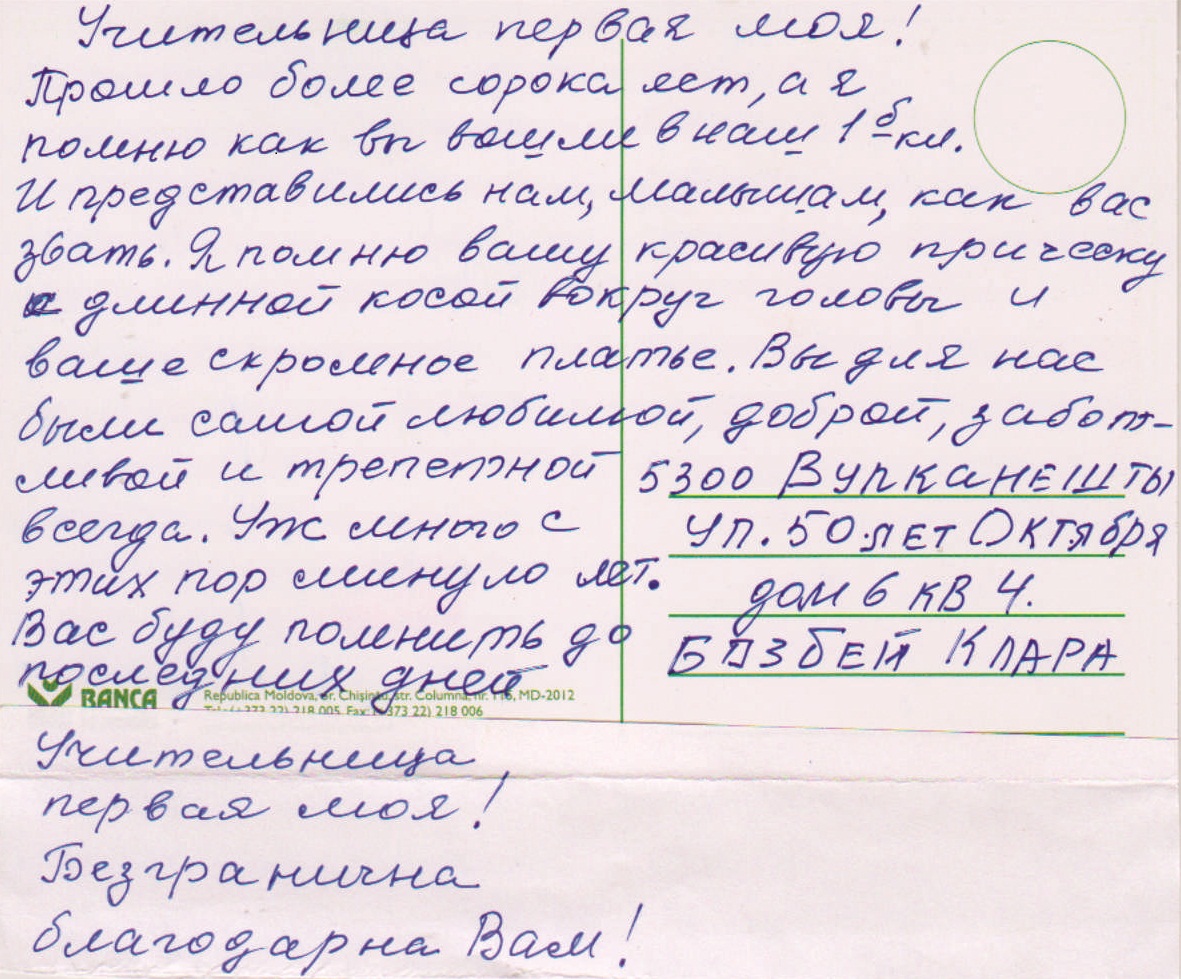 Учительница первая моя!
Прошло более сорока лет, а я
помню как вы вошли в наш 1 б кл.
И представились нам, малышам, как вас
звать. Я помню вашу красивую прическу
с длинной косой вокруг головы и
ваше скромное платье. Вы для нас
были самой любимой, доброй, забот-
ливой и трепетной
всегда. Уж много с
этих пор минуло лет.
Вас буду помнить до
последних дней
5300 Вулканешты
ул. 50 лет Октября
дом 6 кв 4.
Бязбей Клара
BANCA
Republica Moldova, or. Chişinău, str. Columna, nr. 116, MD-2012
Tel: (+373 22) 218 005, Fax: (+373 22) 218 006
Учительница
первая моя!
Безгранична
благодарна Вам!